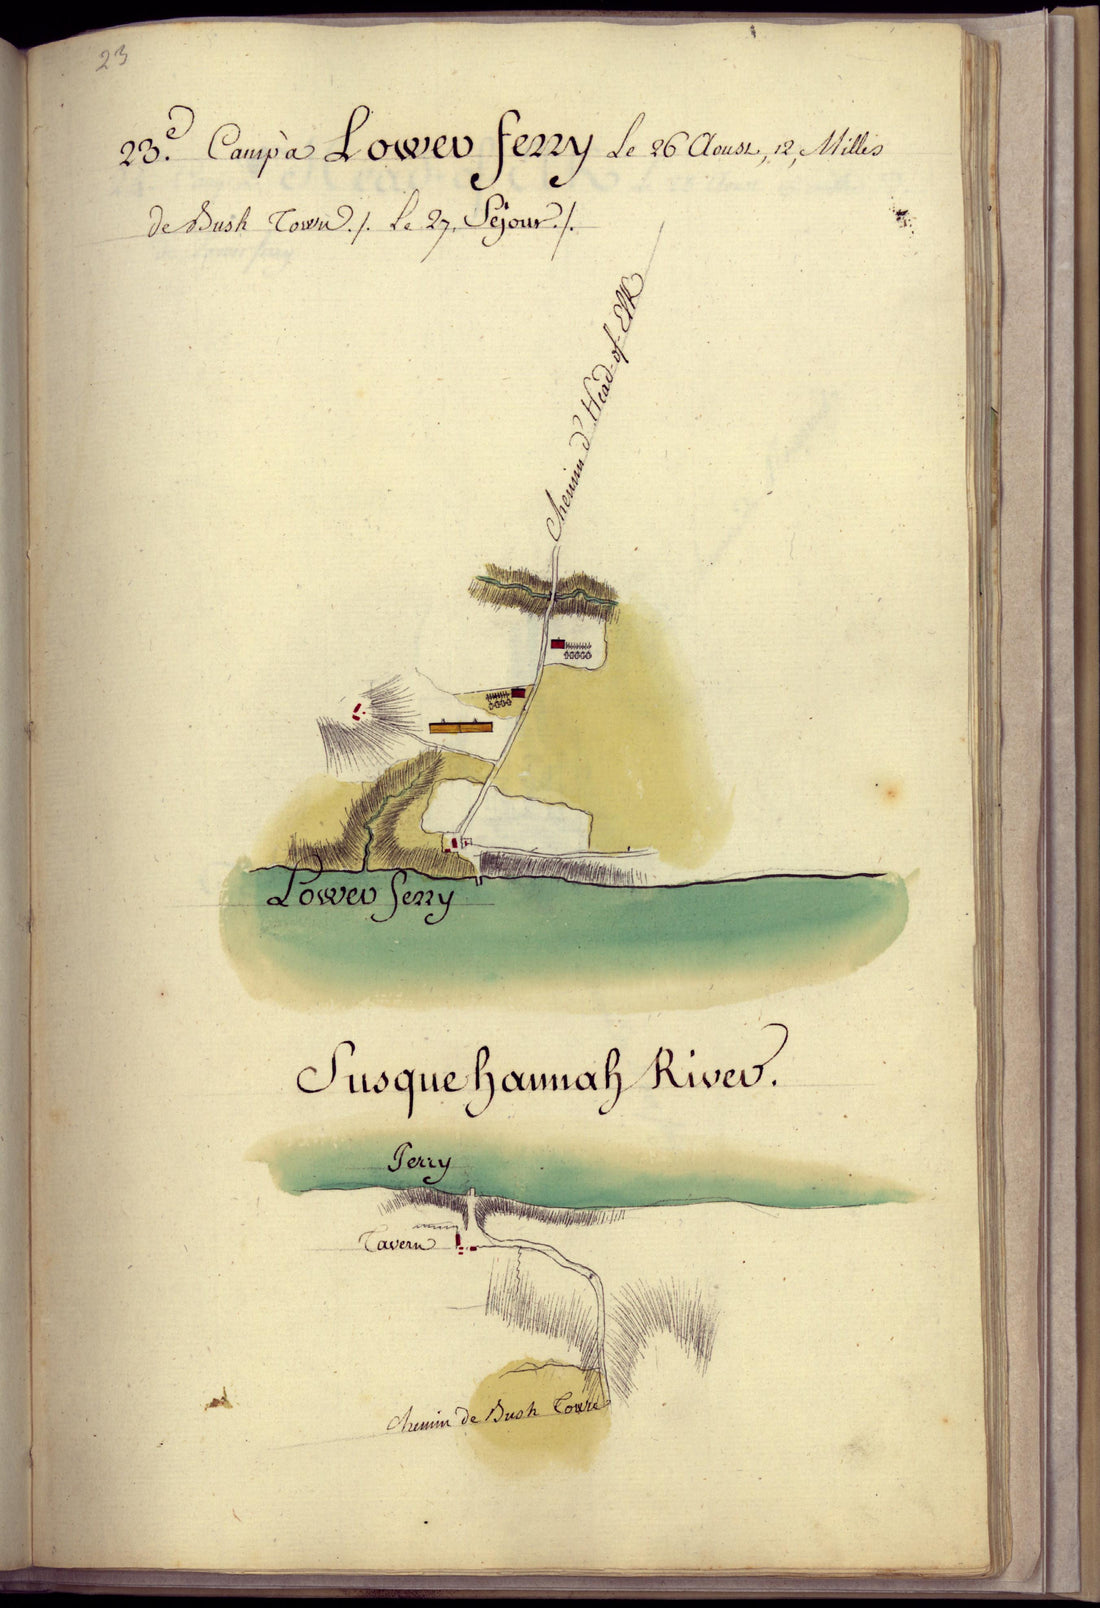 23
23.e Camp à Lower ferry Le 26 Aoust, 12, Milles
de Bush Town ./. Le 27, Séjour ./.
Chemin d'Head-of-Elk
Lower ferry
Susquehannah River.
Ferry
Tavern
Chemin de Bush Town